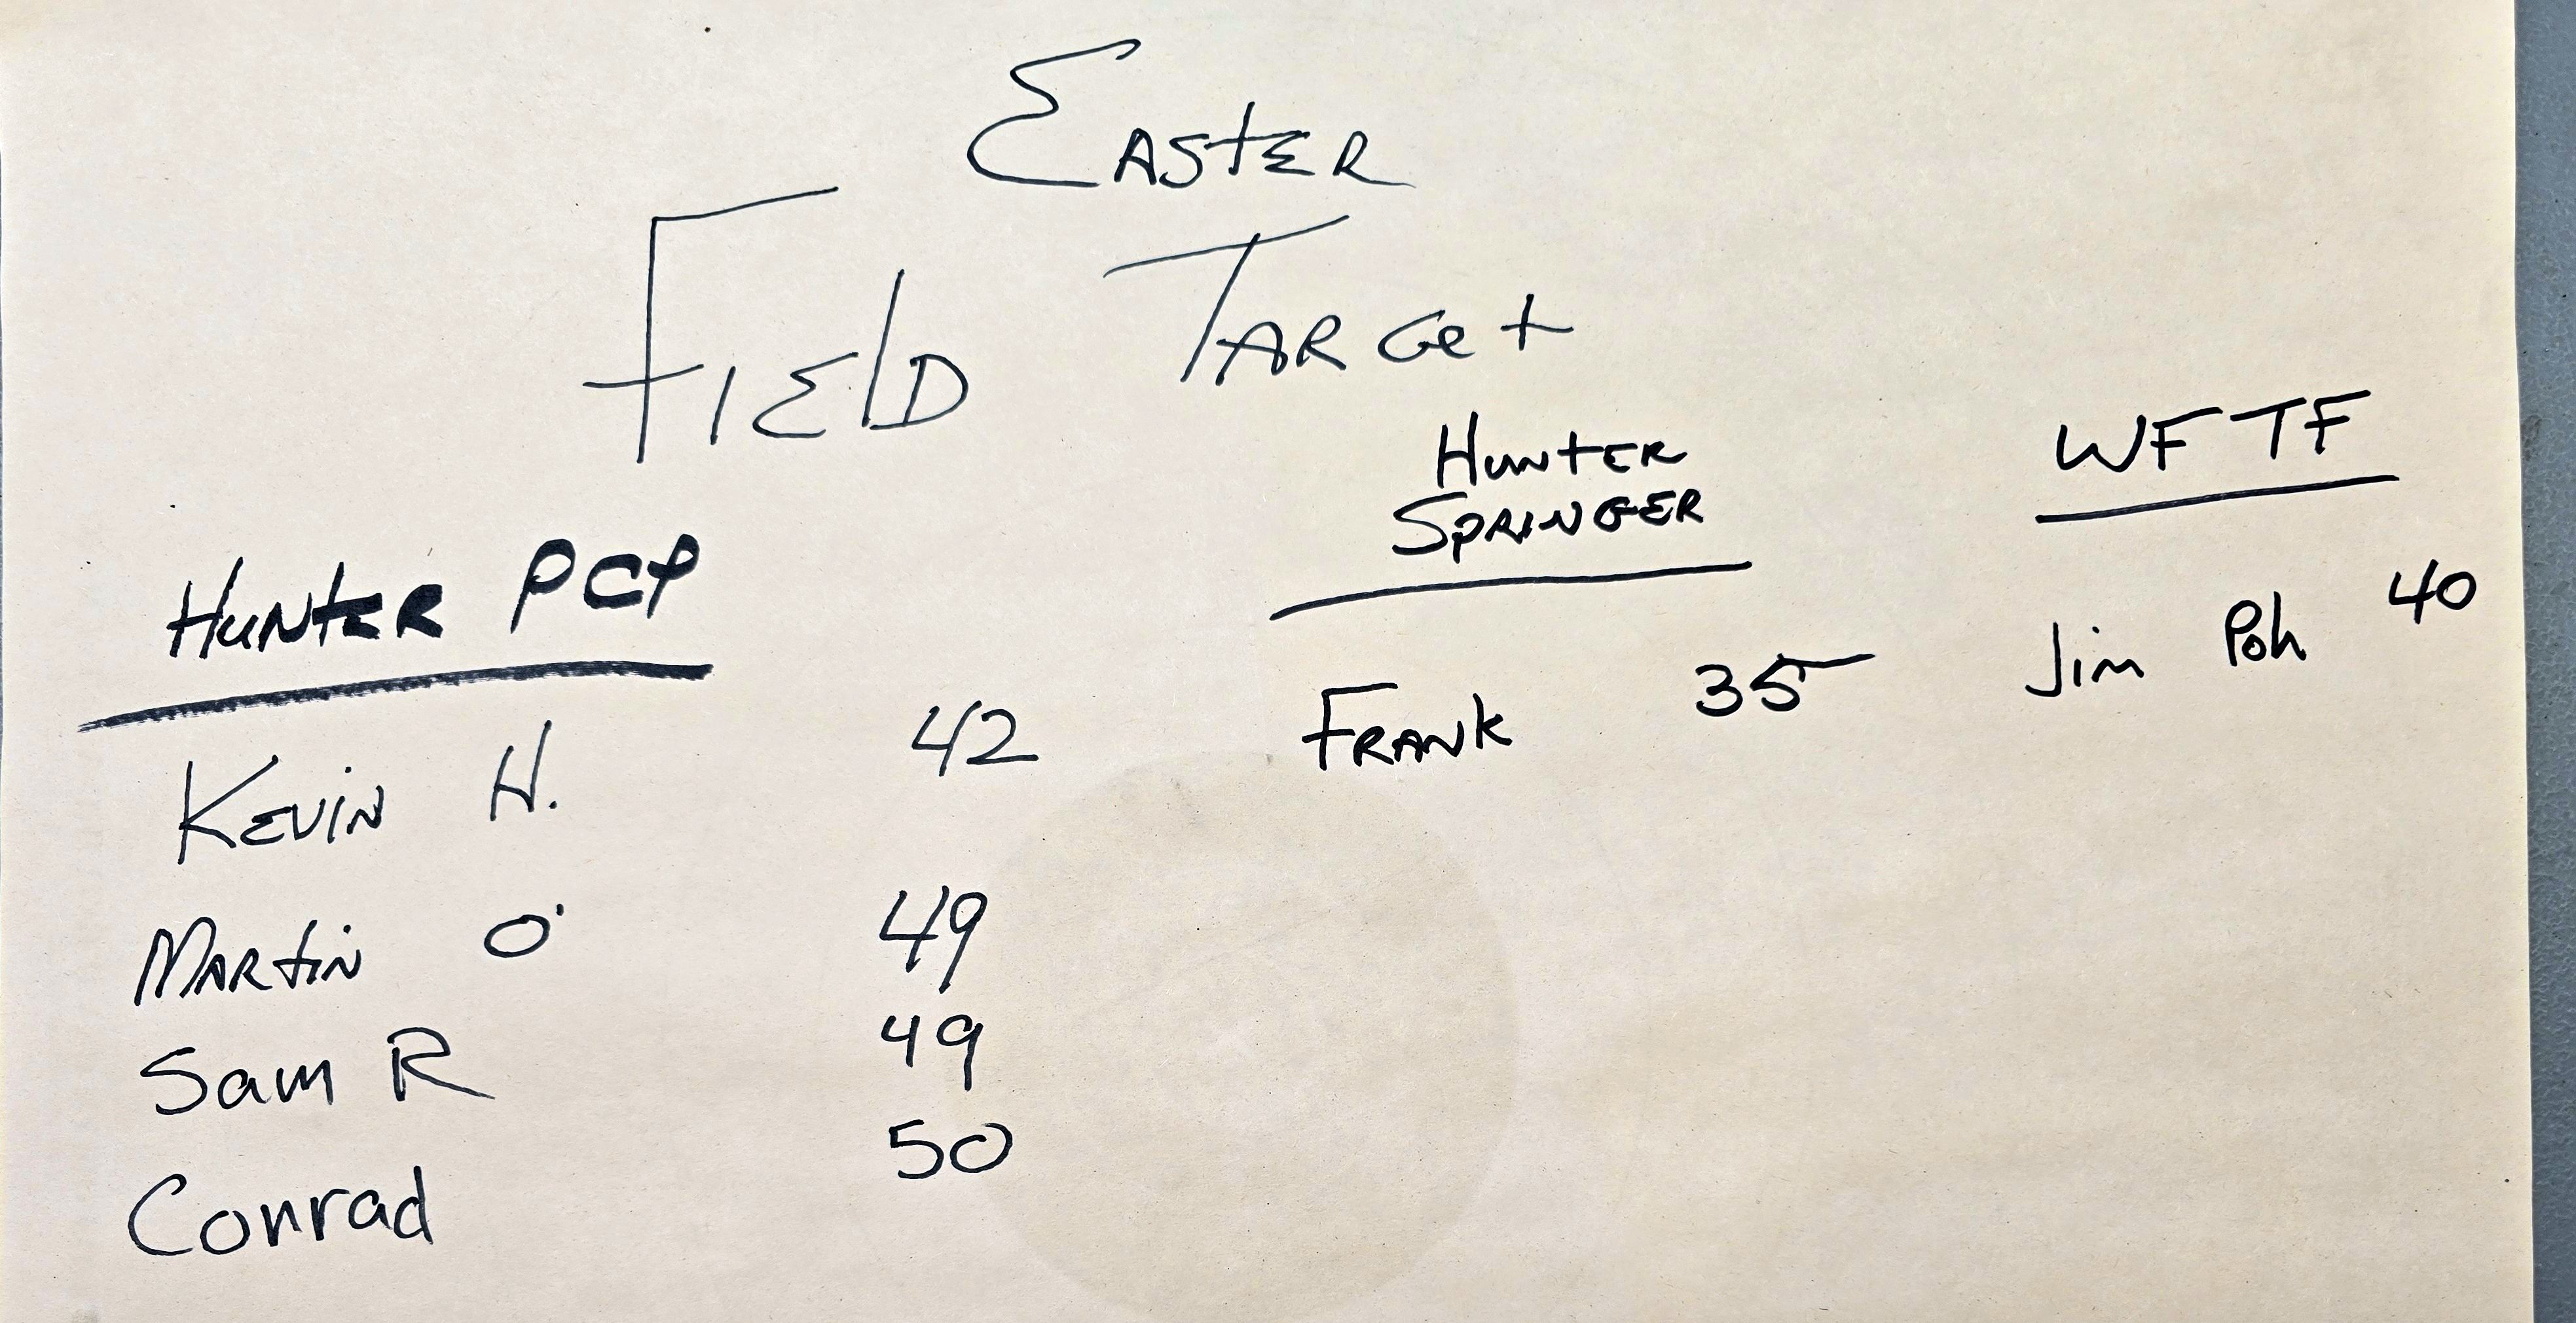 EASTER
FIELD TARGet
HUNTER PCP
Kevin H. 42
Martin O 49
Sam R 49
Conrad 50
HUNTER
SPRINGER
FRANK 35
WFTF
Jim Poh 40